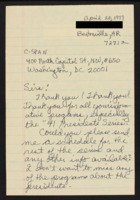 April 20, 1999
Bentonville, AR
72712
C-SPAN
400 North Capitol St., NW, #650
Washington, DC 20001
Sirs:
Thank you! Thank you!
Thank you for all your informative
programs, especially
the "41 Presidents Series"
Could you please send
me a schedule for the
rest of the series and
any other info available?
I don't want to miss any
of the programs about the
presidents!